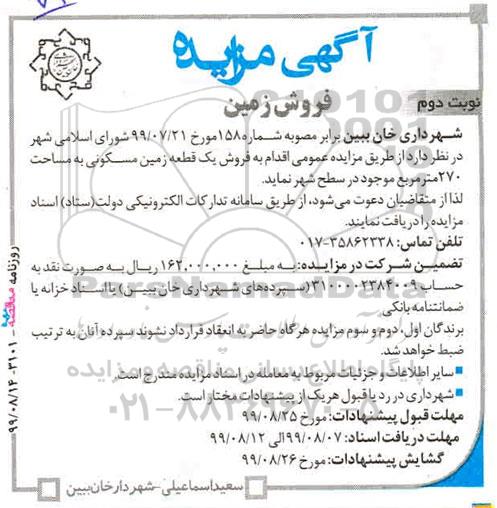 آگهی مزایده
نوبت دوم
فروش زمین
شهرداری خان ببین برابر مصوبه شماره ۱۵۸ مورخ ۹۹/۰۷/۲۱ شورای اسلامی شهر
در نظر دارد از طریق مزایده عمومی اقدام به فروش یک قطعه زمین مسکونی به مساحت
۲۷۰ مترمربع موجود در سطح شهر نماید.
لذا از متقاضیان دعوت می‌شود، از طریق سامانه تدارکات الکترونیکی دولت(ستاد) اسناد
مزایده را دریافت نمایند.
تلفن تماس: ۳۵۸۶۲۳۳۸-۰۱۷
تضمین شرکت در مزایده: به مبلغ ۱۶۲,۰۰۰,۰۰۰ ریال به صورت نقد به
حساب ۳۱۰۰۰۰۲۳۸۴۰۰۹ (سپرده‌های شهرداری خان ببین) یا اسناد خزانه یا
ضمانتنامه بانکی
برندگان اول، دوم و سوم مزایده هرگاه حاضر به انعقاد قرارداد نشوند سپرده آنان به ترتیب
ضبط خواهد شد.
سایر اطلاعات و جزئیات مربوط به معامله در اسناد مزایده مندرج است.
شهرداری در رد یا قبول هر یک از پیشنهادات مختار است.
مهلت قبول پیشنهادات: مورخ ۹۹/۰۸/۲۵
مهلت دریافت اسناد: ۹۹/۰۸/۰۷ الی ۹۹/۰۸/۱۲
گشایش پیشنهادات: مورخ ۹۹/۰۸/۲۶
سعید اسماعیلی-شهردار خان ببین
روزنامه مناقصه - ۳۱۰۱ - ۹۹/۰۸/۱۴